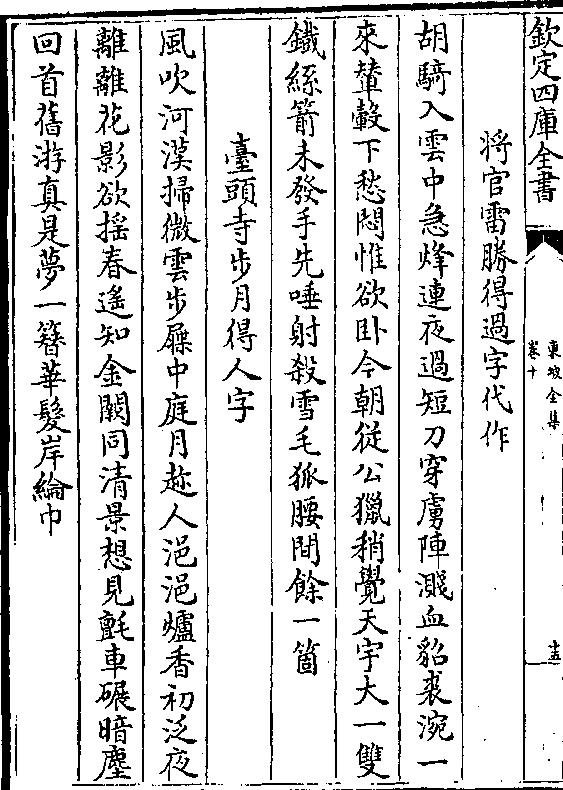 欽定四庫全書
東坡全集
卷十
十五
將官雷勝得過字代作
胡騎入雲中急烽連夜過短刀穿虜陣濺血貂裘涴一
來輦轂下愁悶惟欲卧今朝從公獵稍覺天宇大一雙
鐵絲箭未發手先唾射殺雪毛狐腰間餘一箇
臺頭寺步月得人字
風吹河漢掃微雲步屧中庭月趂人浥浥爐香初泛夜
離離花影欲揺春遙知金闕同清景想見氈車碾暗塵
回首舊游真是夢一簪華髮岸綸巾